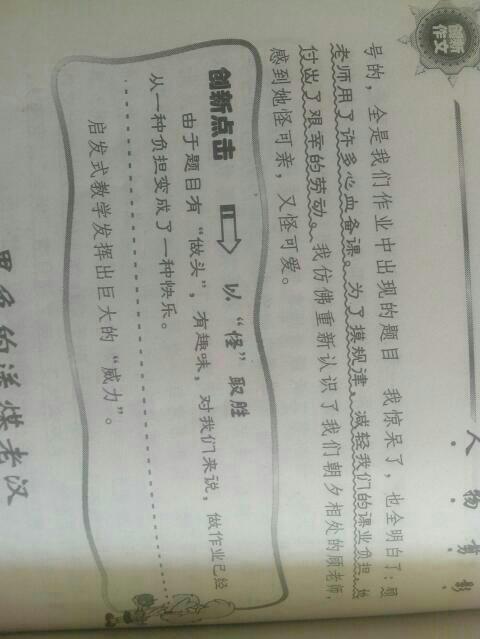 创新
作文
人物剪影
号的，全是我们作业中出现的题目 我惊呆了，也全明白了：顾
老师用了许多心血备课。为了摸规律，减轻我们的课业负担，她
付出了艰辛的劳动。我仿佛重新认识了我们朝夕相处的顾老师，
感到她怪可亲，又怪可爱。
创新点击 以“怪”取胜
由于题目有“做头”，有趣味，对我们来说，做作业已经
从一种负担变成了一种快乐。
启发式教学发挥出巨大的“威力”。
的送煤老汉